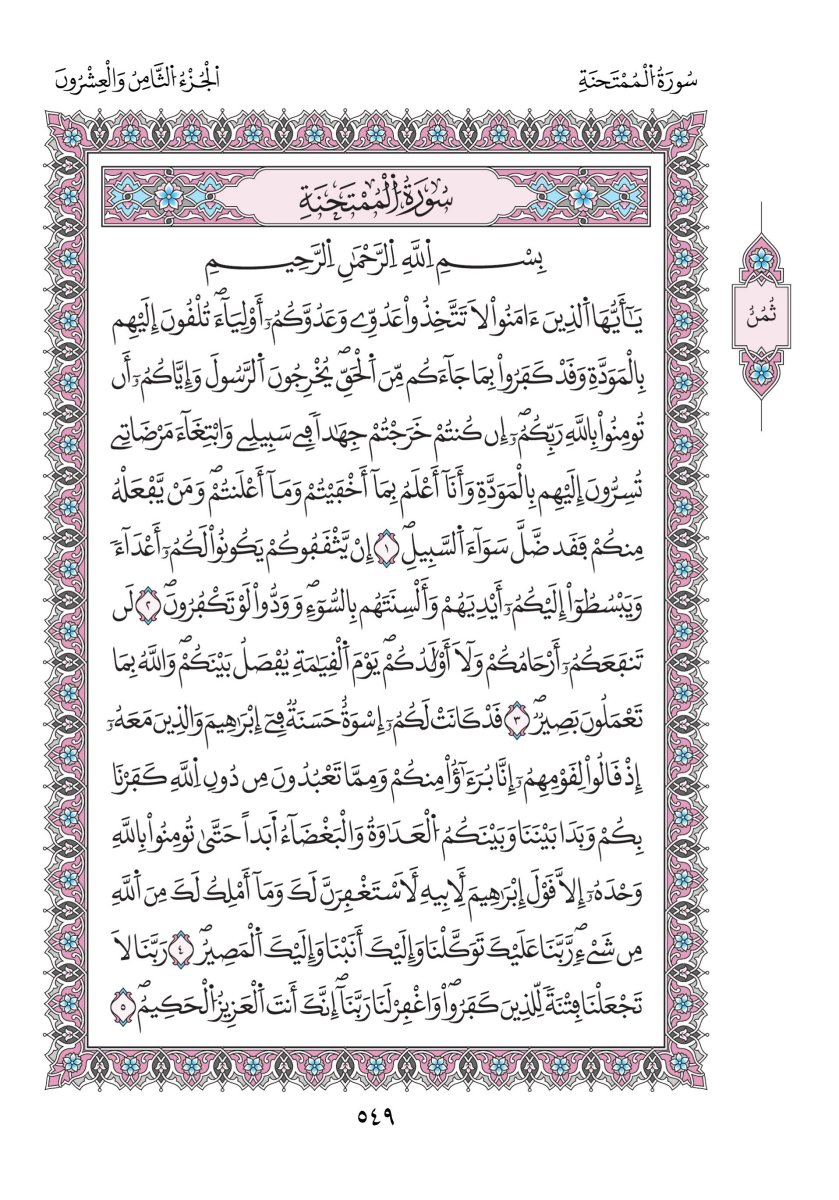 سُورَةُ اُ۬لْمُمْتَحَنَةِ
اَ۬لْجُزْءُ اُ۬لثَّامِنُ وَالْعِشْرُونَ
سُورَةُ اُ۬لْمُمْتَحَنَةِ
ثُمُنُ
بِسْمِ اِ۬للَّهِ اِ۬لرَّحْمَٰنِ اِ۬لرَّحِيمِ
يَٰٓأَيُّهَا اَ۬لذِينَ ءَامَنُواْ لَا تَتَّخِذُواْ عَدُوِّے وَعَدُوَّكُمُۥٓ أَوْلِيَآءَۖ تُلْقُونَ إِلَيْهِم
بِالْمَوَدَّةِ وَقَدْ كَفَرُواْ بِمَا جَآءَكُم مِّنَ اَ۬لْحَقِّۖ يُخْرِجُونَ اَ۬لرَّسُولَ وَإِيَّاكُمُۥٓ أَن
تُومِنُواْ بِاللَّهِ رَبِّكُمُۥٓۖ إِن كُنتُمْ خَرَجْتُمْ جِهَٰداٗ فِے سَبِيلِے وَابْتِغَآءَ مَرْضَاتِے
تُسِرُّونَ إِلَيْهِم بِالْمَوَدَّةِ وَأَنَآ أَعْلَمُ بِمَآ أَخْفَيْتُمْ وَمَآ أَعْلَنتُمْۖ وَمَنْ يَّفْعَلْهُ
مِنكُمْ فَقَد ضَّلَّ سَوَآءَ اَ۬لسَّبِيلِۖ ١ إِنْ يَّثْقَفُوكُمْ يَكُونُواْ لَكُمُۥٓ أَعْدَآءٗ
وَيَبْسُطُوٓاْ إِلَيْكُمُۥٓ أَيْدِيَهُمْ وَأَلْسِنَتَهُم بِالسُّوٓءِۖ وَوَدُّواْ لَوْ تَكْفُرُونَۖ ٢ لَن
تَنفَعَكُمُۥٓ أَرْحَامُكُمْ وَلَآ أَوْلَٰدُكُمْۖ يَوْمَ اَ۬لْقِيَٰمَةِ يُفْصَلُ بَيْنَكُمْۖ وَاللَّهُ بِمَا
تَعْمَلُونَ بَصِيرٞۖ ٣ قَدْ كَانَتْ لَكُمُۥٓ إِسْوَةٌ حَسَنَةٞ فِےٓ إِبْرَٰهِيمَ وَالذِينَ مَعَهُۥٓ
إِذْ قَالُواْ لِقَوْمِهِمُۥٓ إِنَّا بُرَءَٰٓؤُاْ مِنكُمْ وَمِمَّا تَعْبُدُونَ مِن دُونِ اِ۬للَّهِ كَفَرْنَا
بِكُمْ وَبَدَا بَيْنَنَا وَبَيْنَكُمُ اُ۬لْعَدَٰوَةُ وَالْبَغْضَآءُ أَبَداً حَتَّىٰ تُومِنُواْ بِاللَّهِ
وَحْدَهُۥٓ إِلَّا قَوْلَ إِبْرَٰهِيمَ لِأَبِيهِ لَأَسْتَغْفِرَنَّ لَكَ وَمَآ أَمْلِكُ لَكَ مِنَ اَ۬للَّهِ
مِن شَےْءٖۖ رَّبَّنَا عَلَيْكَ تَوَكَّلْنَا وَإِلَيْكَ أَنَبْنَا وَإِلَيْكَ اَ۬لْمَصِيرُۖ ٤ رَبَّنَا لَا
تَجْعَلْنَا فِتْنَةٗ لِّلذِينَ كَفَرُواْۖ وَاغْفِرْ لَنَا رَبَّنَآۖ إِنَّكَ أَنتَ اَ۬لْعَزِيزُ اُ۬لْحَكِيمُۖ ٥
٥٤٩